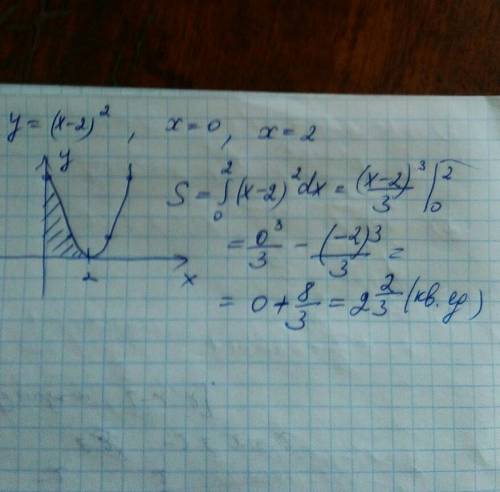 y = (x-2)², x=0, x=2
y
S = ∫₀² (x-2)² dx = (x-2)³/3 |₀² =
= 0³/3 - (-2)³/3 =
2 x
= 0 + 8/3 = 2 2/3 (кв. ед)